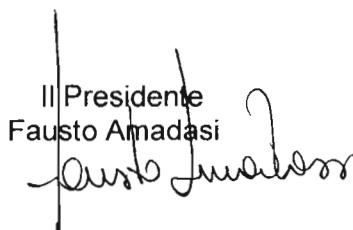 Il Presidente
Fausto Amadasi
Fausto Amadasi